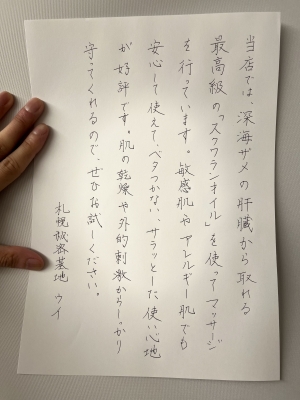 当店では、深海ザメの肝臓から取れる
最高級の「スクワランオイル」を使ってマッサージ
を行っています。敏感肌やアレルギー肌でも
安心して使えて、ベタつかない、サラッとした使い心地
が好評です。肌の乾燥や外的刺激からしっかり
守ってくれるので、ぜひお試しください。
札幌秘密基地 ウイ